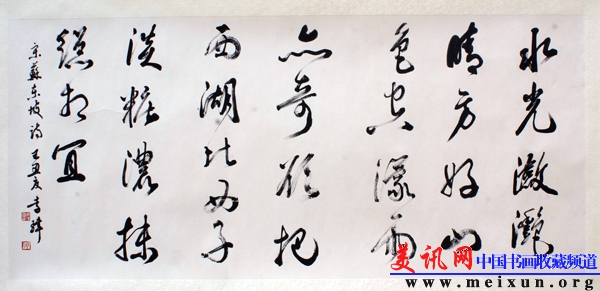 水光瀲灩
晴方好山
色空濛雨
亦奇欲把
西湖比西子
淡粧濃抹
總相宜
宋蘇东坡诗 己丑夏
美讯网 中国书画收藏频道
www.meixun.org